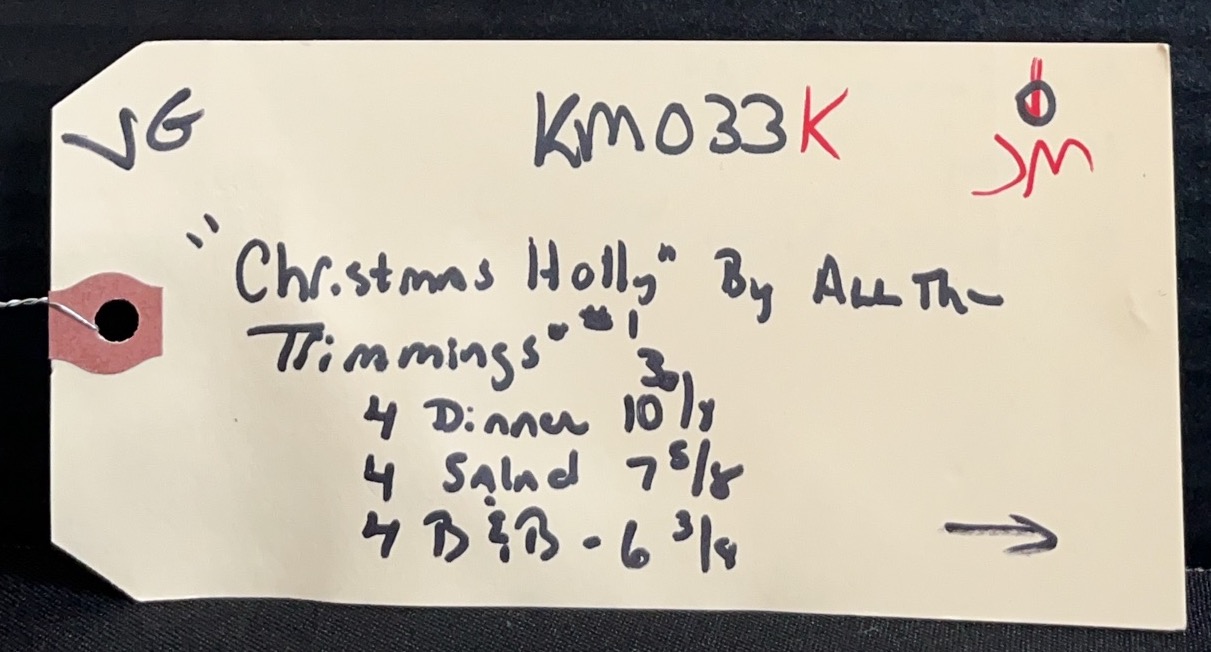 VG KM033K
JM
"Christmas Holly" By All The
Trimmings" #1
4 Dinner 10 3/8
4 Salad 7 5/8
4 B & B - 6 3/8